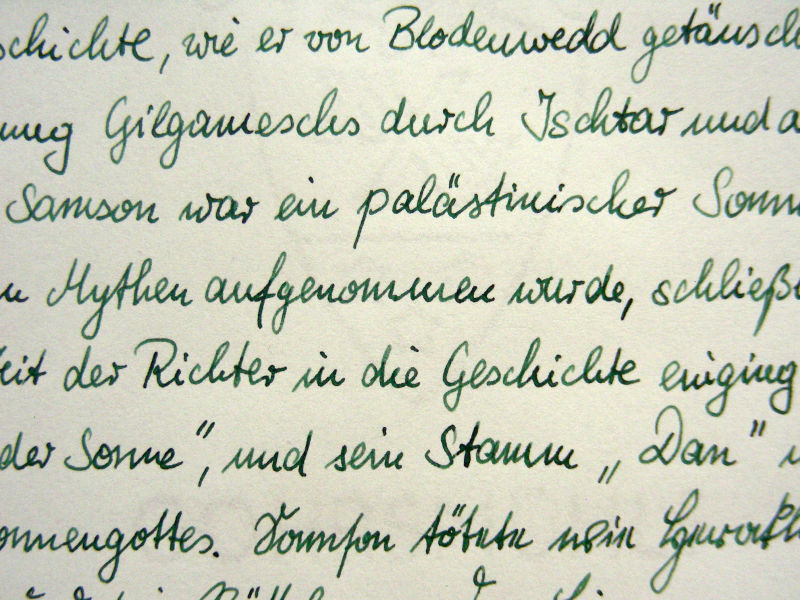 schichte, wie er von Blodenwedd getäusch
nung Gilgameschs durch Ischtar und a
Samson war ein palästinischer Sonne
n Mythen aufgenommen wurde, schließ
Zeit der Richter in die Geschichte einging
der Sonne", und sein Stamm „Dan"
onnengottes. Samson tötete wie